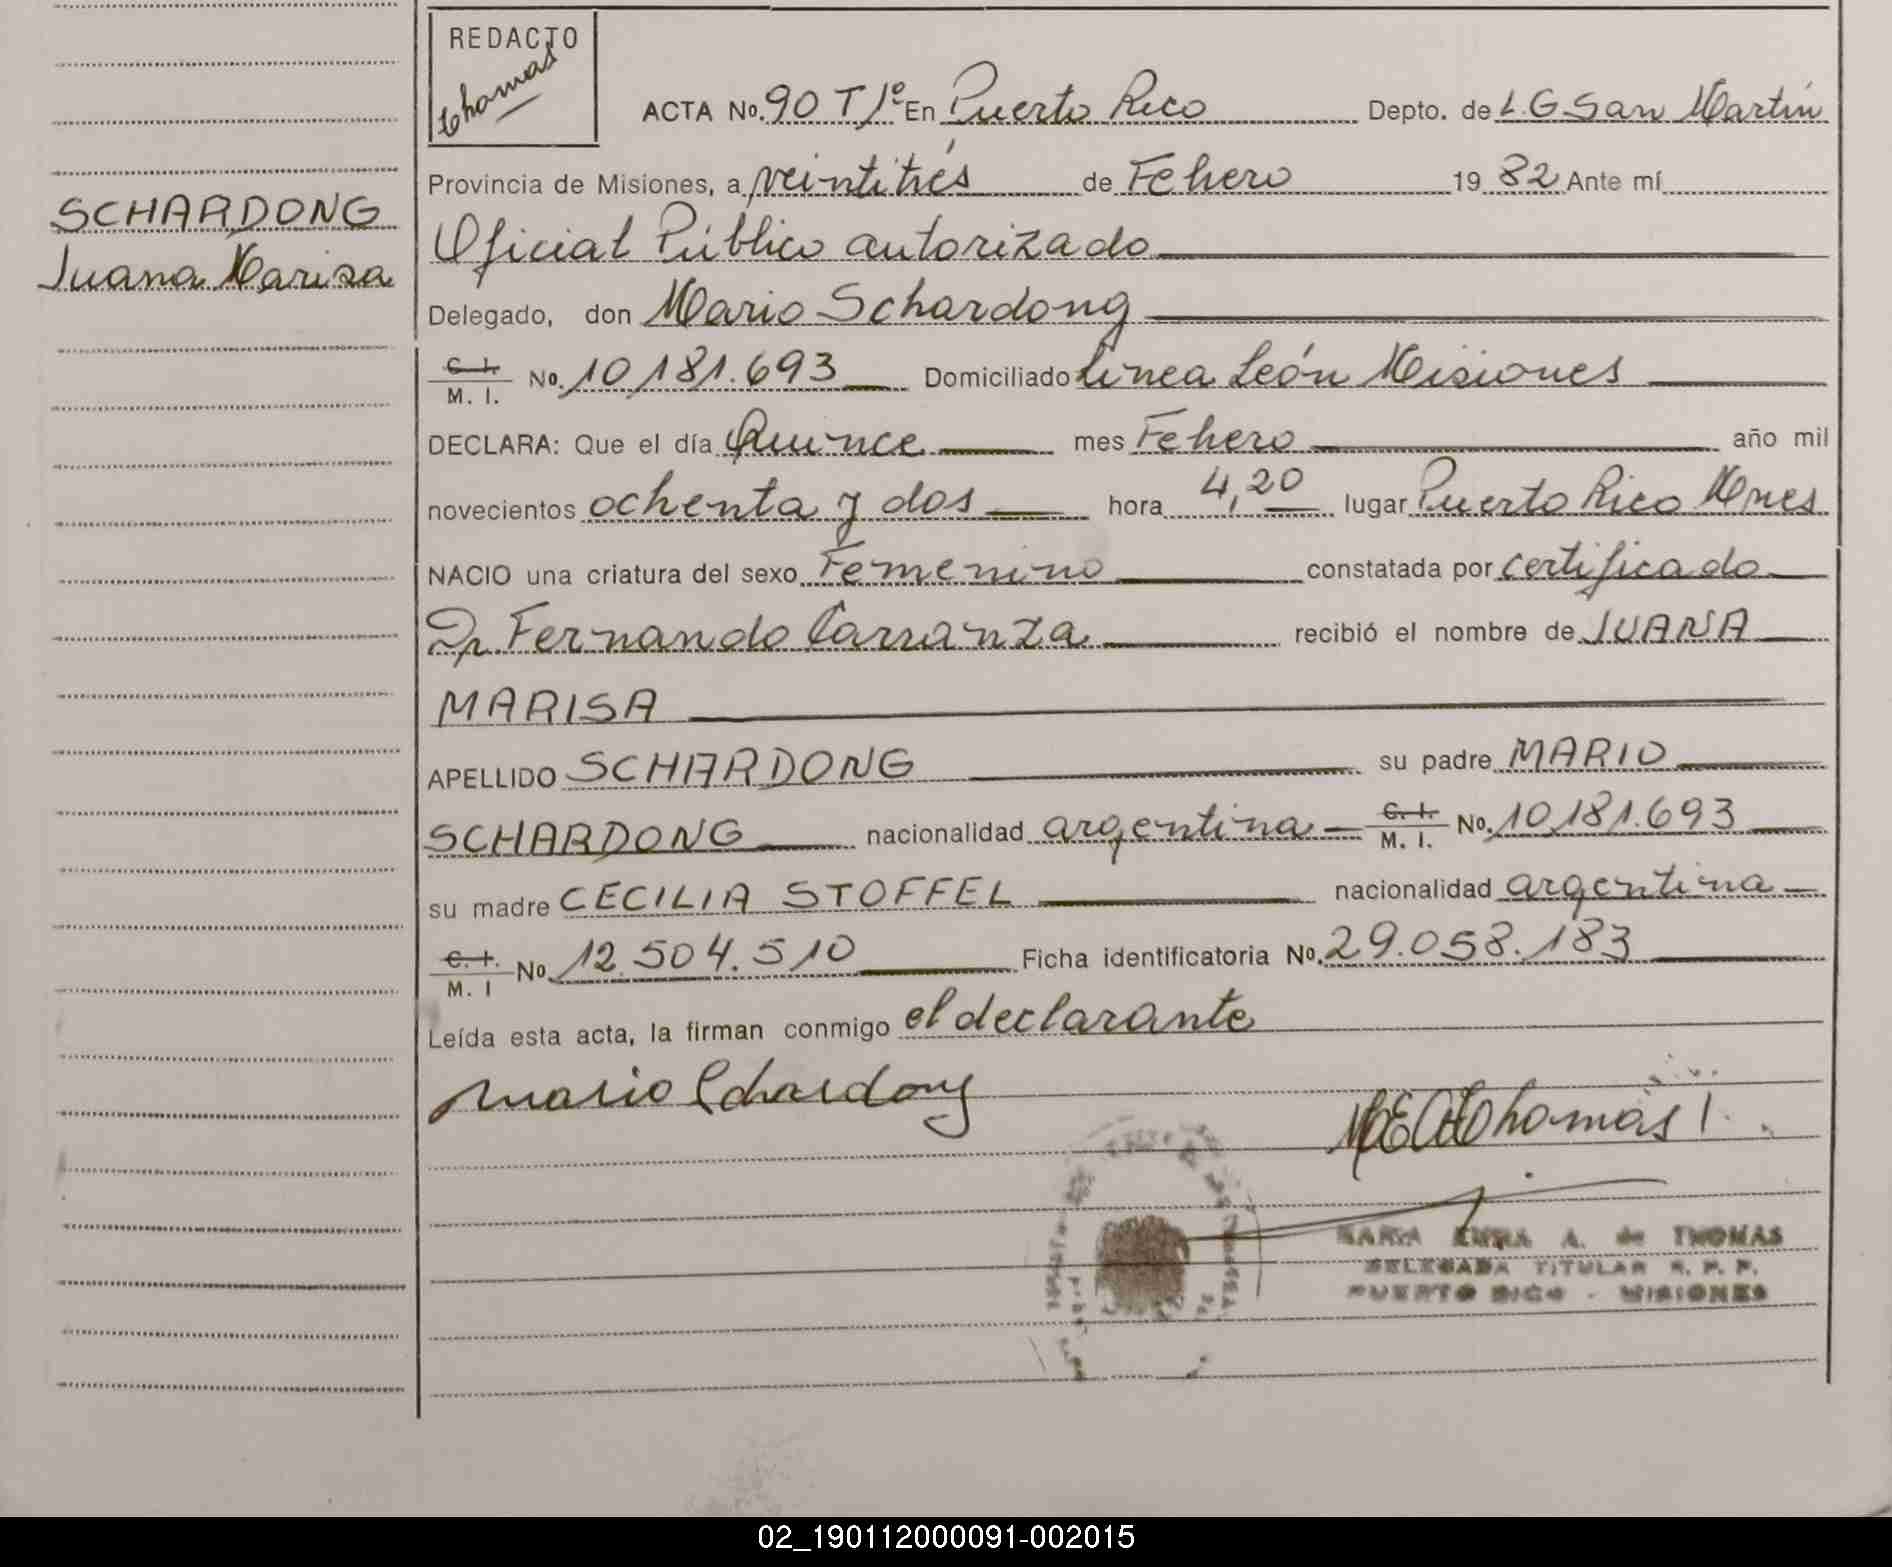 REDACTO
Thomas
ACTA No. 90 T 1º En Puerto Rico Depto. de L.G. San Martín
Provincia de Misiones, a veintitrés de Febrero 19 82 Ante mí
SCHARDONG
Juana Marisa
Oficial Público autorizado
Delegado, don Mario Schardong
C. I.
M. I. No. 10.181.693 Domiciliado Línea León Misiones
DECLARA: Que el día Quince mes Febrero año mil
novecientos ochenta y dos hora 4,20 lugar Puerto Rico Mnes
NACIO una criatura del sexo Femenino constatada por certificado
Dr. Fernando Carranza recibió el nombre de JUANA
MARISA
APELLIDO SCHARDONG su padre MARIO
SCHARDONG nacionalidad argentina C. I. M. I. No. 10.181.693
su madre CECILIA STOFFEL nacionalidad argentina
C. I.
M. I No. 12.504.510 Ficha identificatoria No. 29.058.183
Leída esta acta, la firman conmigo el declarante
Mario Schardong
Thomas
MARIA EMMA A. de THOMAS
DELEGADA TITULAR R. P. P.
PUERTO RICO - MISIONES
02_190112000091-002015